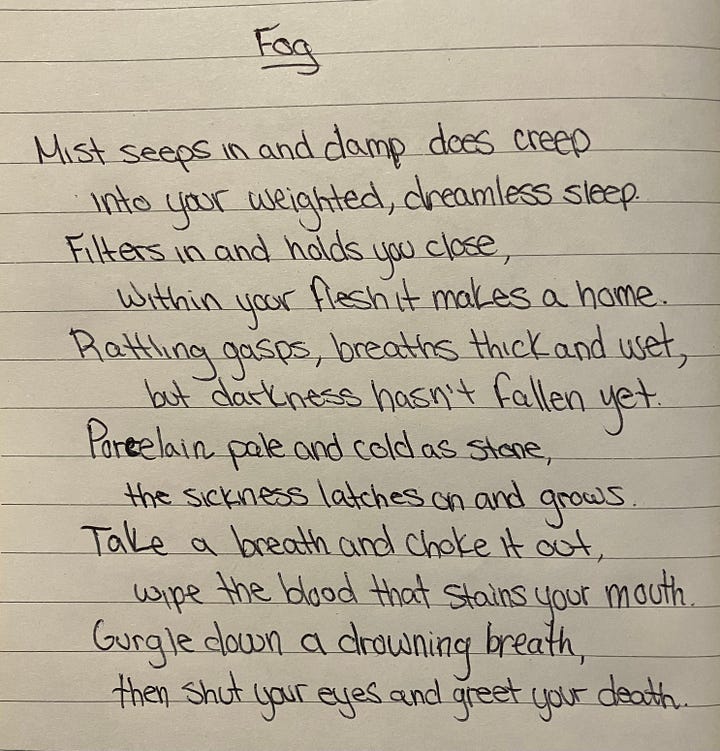 Fog
Mist seeps in and damp does creep
into your weighted, dreamless sleep.
Filters in and holds you close,
Within your flesh it makes a home.
Rattling gasps, breaths thick and wet,
but darkness hasn't fallen yet.
Porcelain pale and cold as stone,
the sickness latches on and grows.
Take a breath and choke it out,
wipe the blood that stains your mouth.
Gurgle down a drowning breath,
then shut your eyes and greet your death.